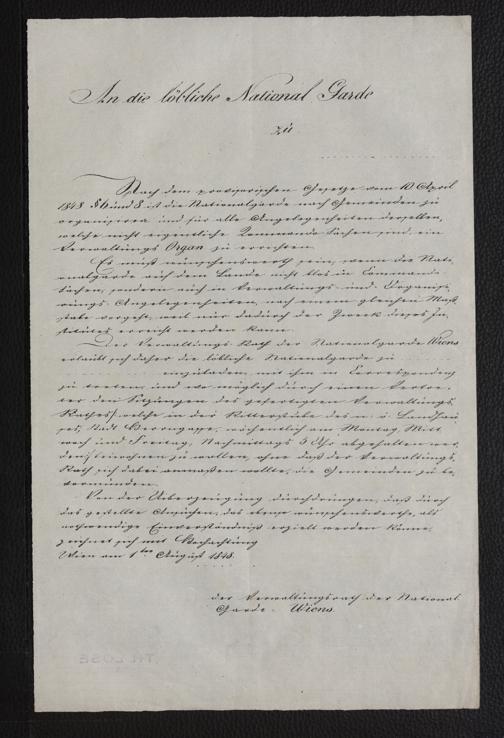 An die löbliche National Garde
zu
Nach dem provisorischen Gesetze vom 10 April
1848 §6 und 8 ist die Nationalgarde nach Gemeinden zu
organisiren und für alle Angelegenheiten derselben,
welche nicht eigentliche Commando Sachen sind, ein
Verwaltungs Organ zu errichten.
Es muß wünschenswerth sein, wenn die Nati-
onalgarde auf dem Lande nicht blos in Commando
sachen, sondern auch in Verwaltungs- und Organisi-
rungs-Angelegenheiten, nach einem gleichen Maß-
stabe vorgeht, weil nur dadurch der Zweck dieses In-
stitutes erreicht werden kann.
Der Verwaltungs-Rath der Nationalgarde Wiens
erlaubt sich daher die löbliche Nationalgarde zu
einzuladen, mit ihm in Correspondenz
zu treten, und wo möglich durch einen Vertre-
ter den Sitzungen des gefertigten Verwaltungs-
Rathes, welche in der Ritterstube des n. ö. Landhau-
ses, Stadt Herrngasse, wöchentlich am Montag, Mitt-
woch und Freitag, Nachmittags 5 Uhr abgehalten wer-
den, beiwohnen zu wollen, ohne daß der Verwaltungs-
Rath sich dabei anmaßen wollte, die Gemeinden zu be-
vormunden.
Von der Ueberzeugung durchdrungen, daß durch
das gestellte Ansuchen, das ebenso wünschenswerthe, als
nothwendige Einverständniß erzielt werden könne,
zeichnet sich mit Hochachtung
Wien am 1ten August 1848.
der Verwaltungsrath der National
Garde Wiens.